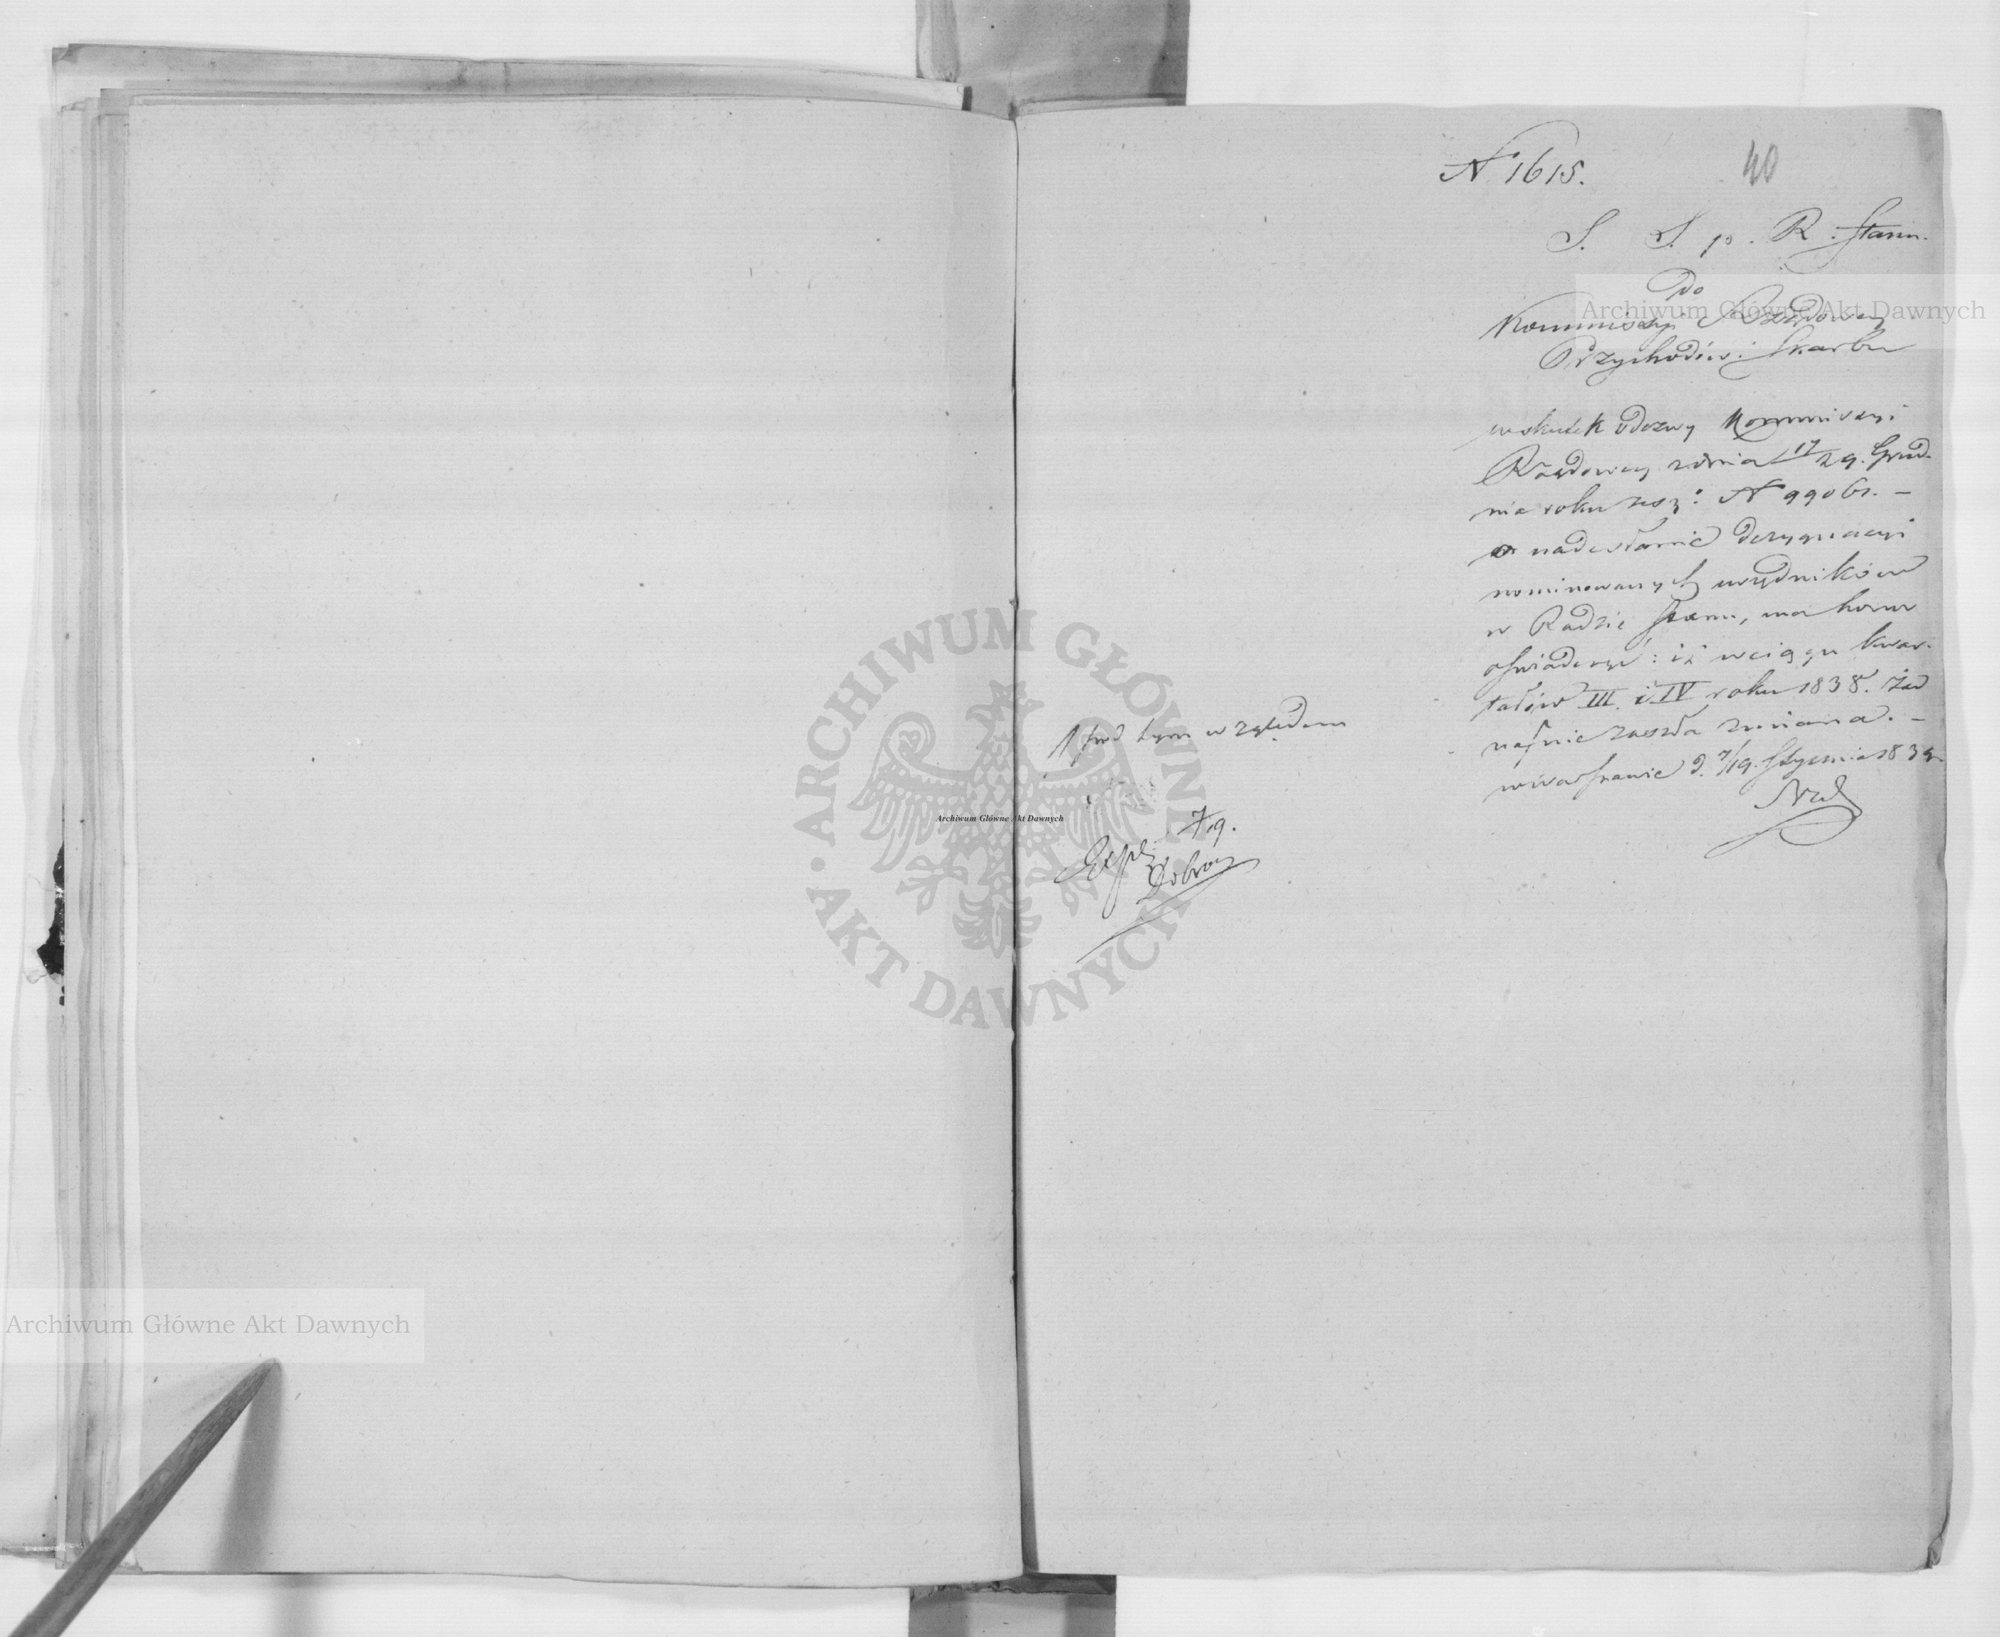 N 1615.
40
S. S. p. R. Stanu.
do
Kommissyi Rządowey
Przychodów i Skarbu
wskutek odezwy Kommissyi
Rządowey z dnia 17/29. Grud-
nia roku zesz: N 990 –
o nadesłanie dezygnacyi
nominowanych urzędników
w Radzie Stanu, ma honor
oświadczyć: iż wciągu kwar-
tałów III. i IV roku 1838. żad
na/nie zaszła zmiana. –
w Warszawie d. 7/19. Stycznia 1839
/ pod tym względem
Exp: 7/19.
Archiwum Główne Akt Dawnych
Archiwum Główne Akt Dawnych
Archiwum Główne Akt Dawnych
ARCHIWUM GŁÓWNE · AKT DAWNYCH ·